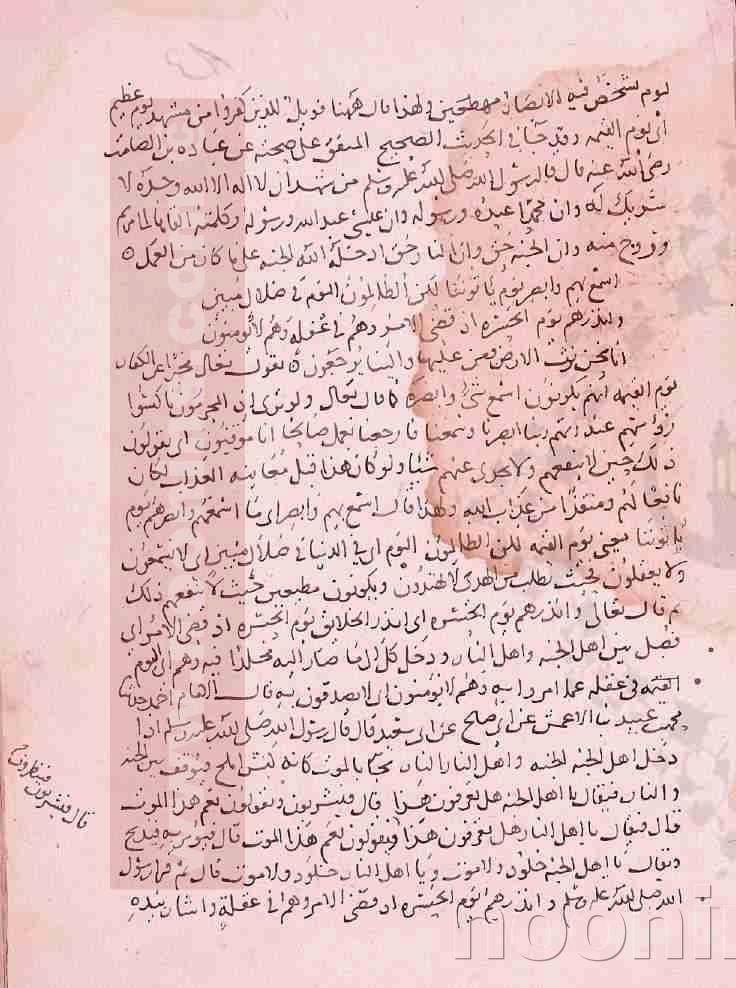 ليوم تشخص فيه الابصار مهطعين ولهذا قال ههنا فويل للذين كفروا من مشهد يوم عظيم
اى يوم القيمه وقد جا فى الحديث الصحيح المتفق على صحته عن عباده بن الصامت
رضى الله عنه قال قال رسول الله صلى الله عليه وسلم من شهد ان لا اله الا الله وحده لا
شريك له وان محمدا عبده ورسوله وان عيسى عبد الله ورسوله وكلمته القاها الى مريم
وروح منه وان الجنه حق وان النار حق ادخله الله الجنه على ما كان من العمل ه
اسمع بهم وابصر يوم ياتوننا لكن الظالمون اليوم فى ضلال مبين
وانذرهم يوم الحسره اذ قضى الامر وهم فى غفله وهم لا يومنون
انا نحن نرث الارض ومن عليها والينا يرجعون ه يقول تعالى مخبرا عن الكفار
يوم القيمه انهم يكونون اسمع شى وابصره كما قال تعالى ولو ترى اذ المجرمون ناكسوا
رؤسهم عند ربهم ربنا ابصرنا وسمعنا فارجعنا نعمل صالحا انا موقنون اى يقولون
ذلك حين لا ينفعهم ولا يجدى عنهم شيئا ولو كان هذا قبل معاينه العذاب لكان
نافعا لهم ومنقذا من عذاب الله ولهذا قال اسمع بهم وابصر اى ما اسمعهم وابصرهم يوم
ياتوننا يعنى يوم القيمه لكن الظالمون اليوم اى فى الدنيا فى ضلال مبين اى لا يسمعون
ولا يعقلون فحيث يطلب منهم الهدى لا يهتدون ويكونون مطيعين حيث لا ينفعهم ذلك
ثم قال تعالى وانذرهم يوم الحسره اى انذر الخلائق يوم الحسره اذ قضى الامر اى
فصل بين اهل الجنه واهل النار ودخل كل الى ما صار اليه مخلدا فيه وهم اى اليوم
فى غفله عما امروا به وهم لا يومنون اى لا يصدقون به قال الامام احمد حدثنا
محمد بن عبيد نا الاعمش عن ابى صالح عن ابى سعيد قال قال رسول الله صلى الله عليه وسلم اذا
دخل اهل الجنه الجنه واهل النار النار يجا بالموت كانه كبش املح فيوقف بين الجنه
والنار فيقال يا اهل الجنه هل تعرفون هذا قال فيشربون ويقولون نعم هذا الموت
قال فيقال يا اهل النار هل تعرفون هذا فيقولون نعم هذا الموت قال فيومر به فيذبح
ويقال يا اهل الجنه خلود ولا موت ويا اهل النار خلود ولا موت قال ثم قرا رسول
الله صلى الله عليه وسلم وانذرهم يوم الحسره اذ قضى الامر وهم فى غفله واشار بيده
قال فيشربون فينظرون
noonli